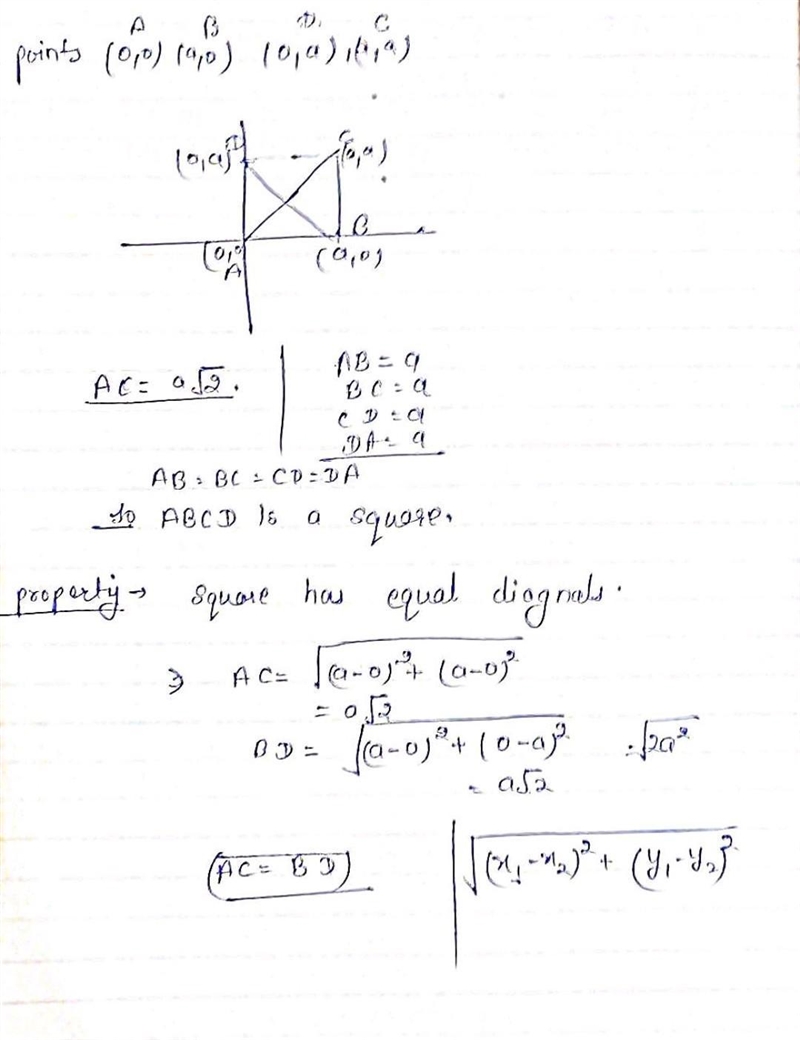 A B D. C
points (0,0) (a,0) (0,a), (a,a)
D C
(0,a) (a,a)
B
(0,0 (a,0)
A
AC = a√2.
AB = a
BC = a
CD = a
DA = a
AB = BC = CD = DA
so ABCD is a square.
property → square has equal diognals.
⇒ AC = √(a-0)²+ (a-0)²
= a√2
BD = √(a-0)²+ (0-a)² = √2a²
= a√2
AC = BD
√(x₁-x₂)²+ (y₁-y₂)²